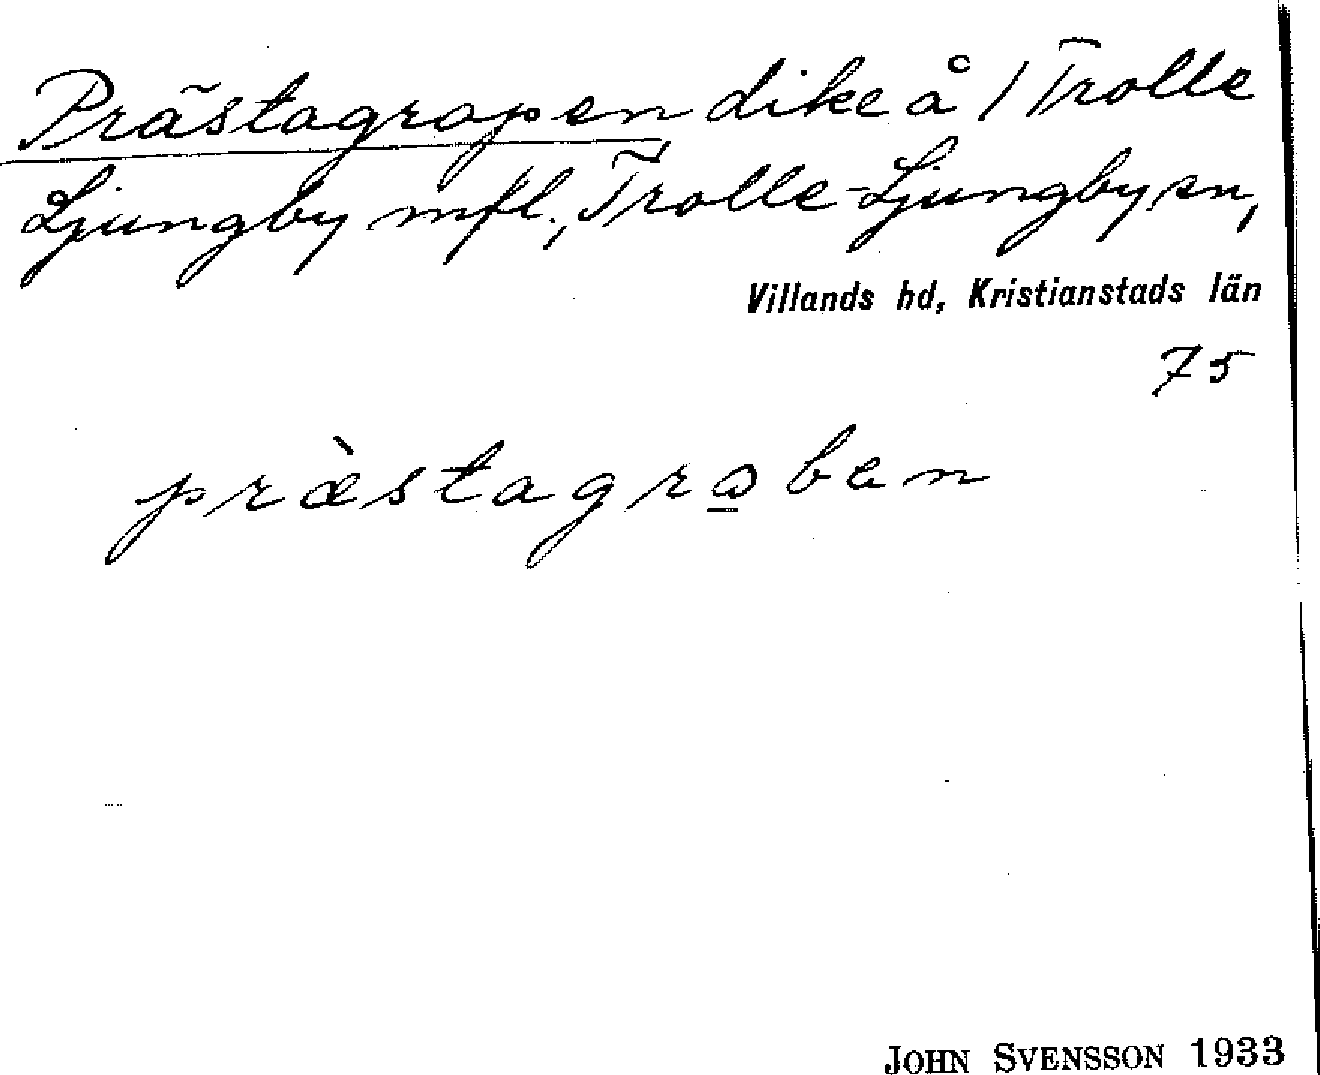 Prästagropen dike å 1 Trolle
Ljungby mfl., Trolle-Ljungby sn,
Villands hd, Kristianstads län
75
præ̀stagrω̲ben
JOHN SVENSSON 1933